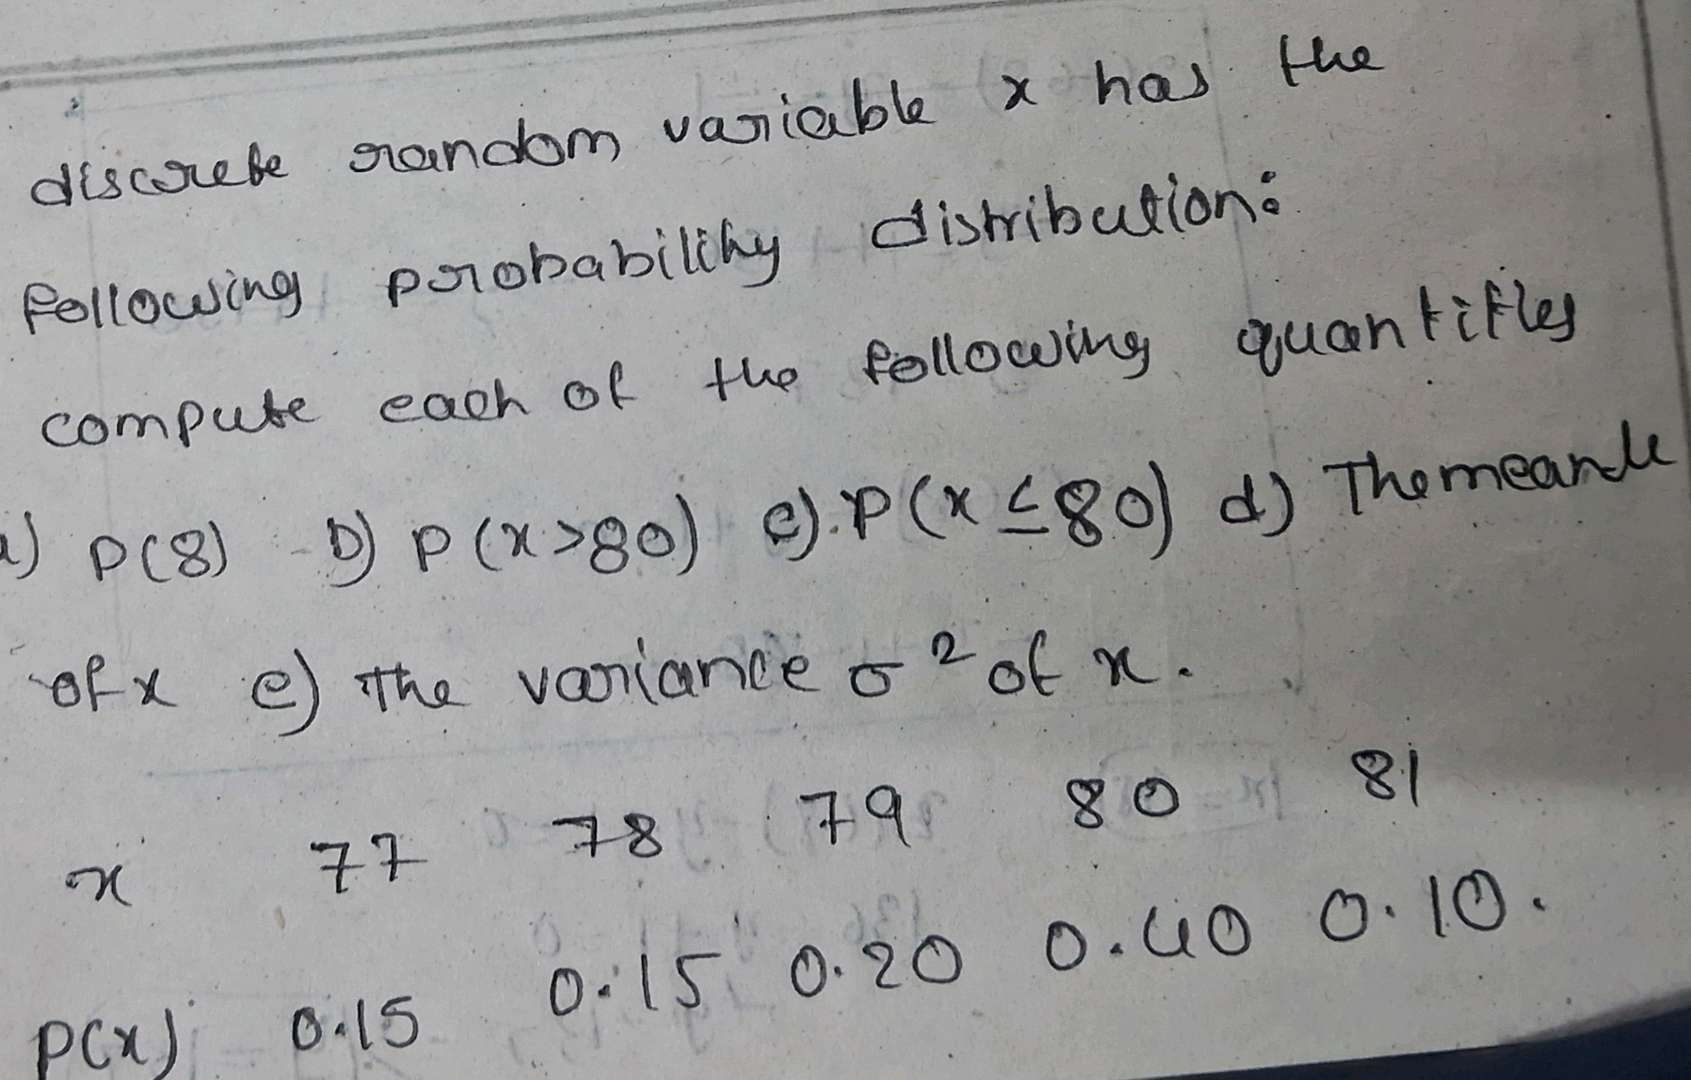 discrete random variable x has the
following probability distribution:
compute each of the following quantities
a) P(8) b) P(x>80) c). P(x ≤ 80) d) The mean μ
of x e) The variance σ² of x.
x 77 78 79 80 81
P(x) 0.15 0.15 0.20 0.40 0.10.